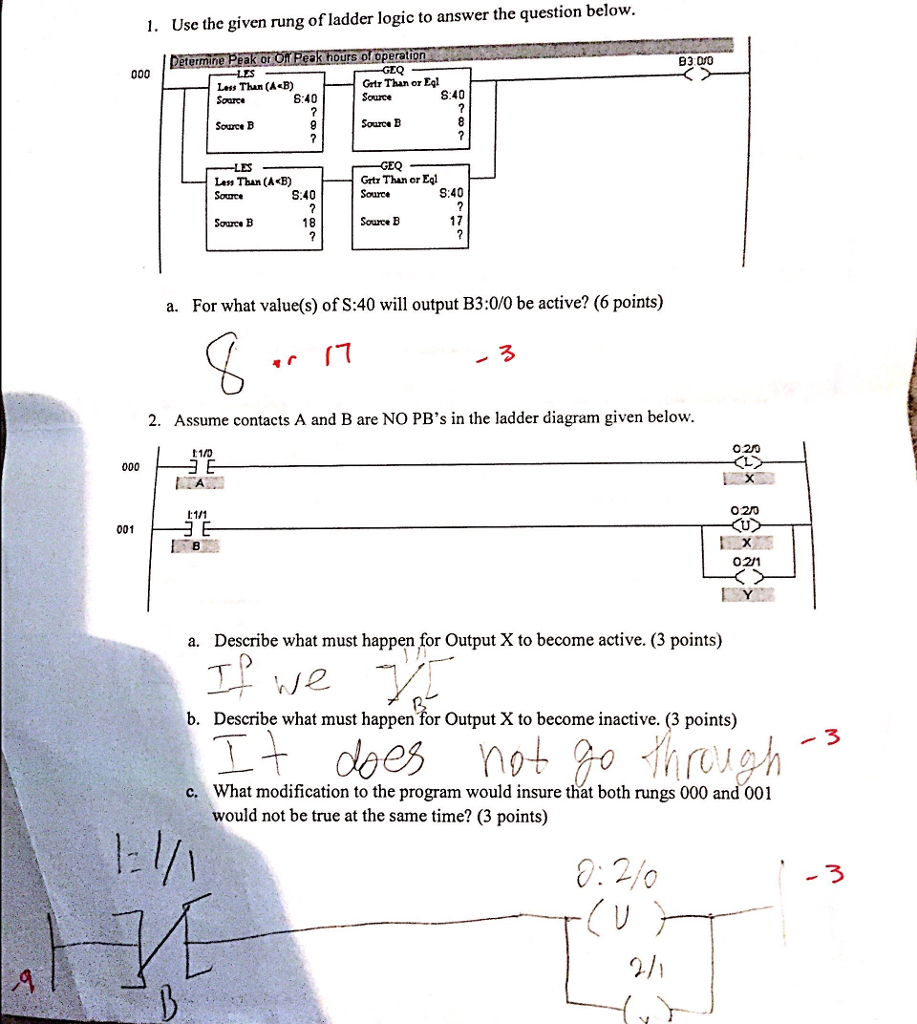 1. Use the given rung of ladder logic to answer the question below.
Determine Peak or Off Peak hours of operation
000
B3:0/0
LES
Less Than (A<B)
Source S:40
?
Source B 9
?
GEQ
Grtr Than or Eql
Source S:40
?
Source B 8
?
LES
Less Than (A<B)
Source S:40
?
Source B 18
?
GEQ
Grtr Than or Eql
Source S:40
?
Source B 17
?
a. For what value(s) of S:40 will output B3:0/0 be active? (6 points)
8 or 17 -3
2. Assume contacts A and B are NO PB's in the ladder diagram given below.
I:1/0 O:2/0
000 L
A X
I:1/1 O:2/0
001 U
B X
O:2/1
Y
a. Describe what must happen for Output X to become active. (3 points)
If we
B
b. Describe what must happen for Output X to become inactive. (3 points)
It does not go through -3
c. What modification to the program would insure that both rungs 000 and 001
would not be true at the same time? (3 points)
I:1/1 O:2/0 -3
(U)
2/1
-9
B